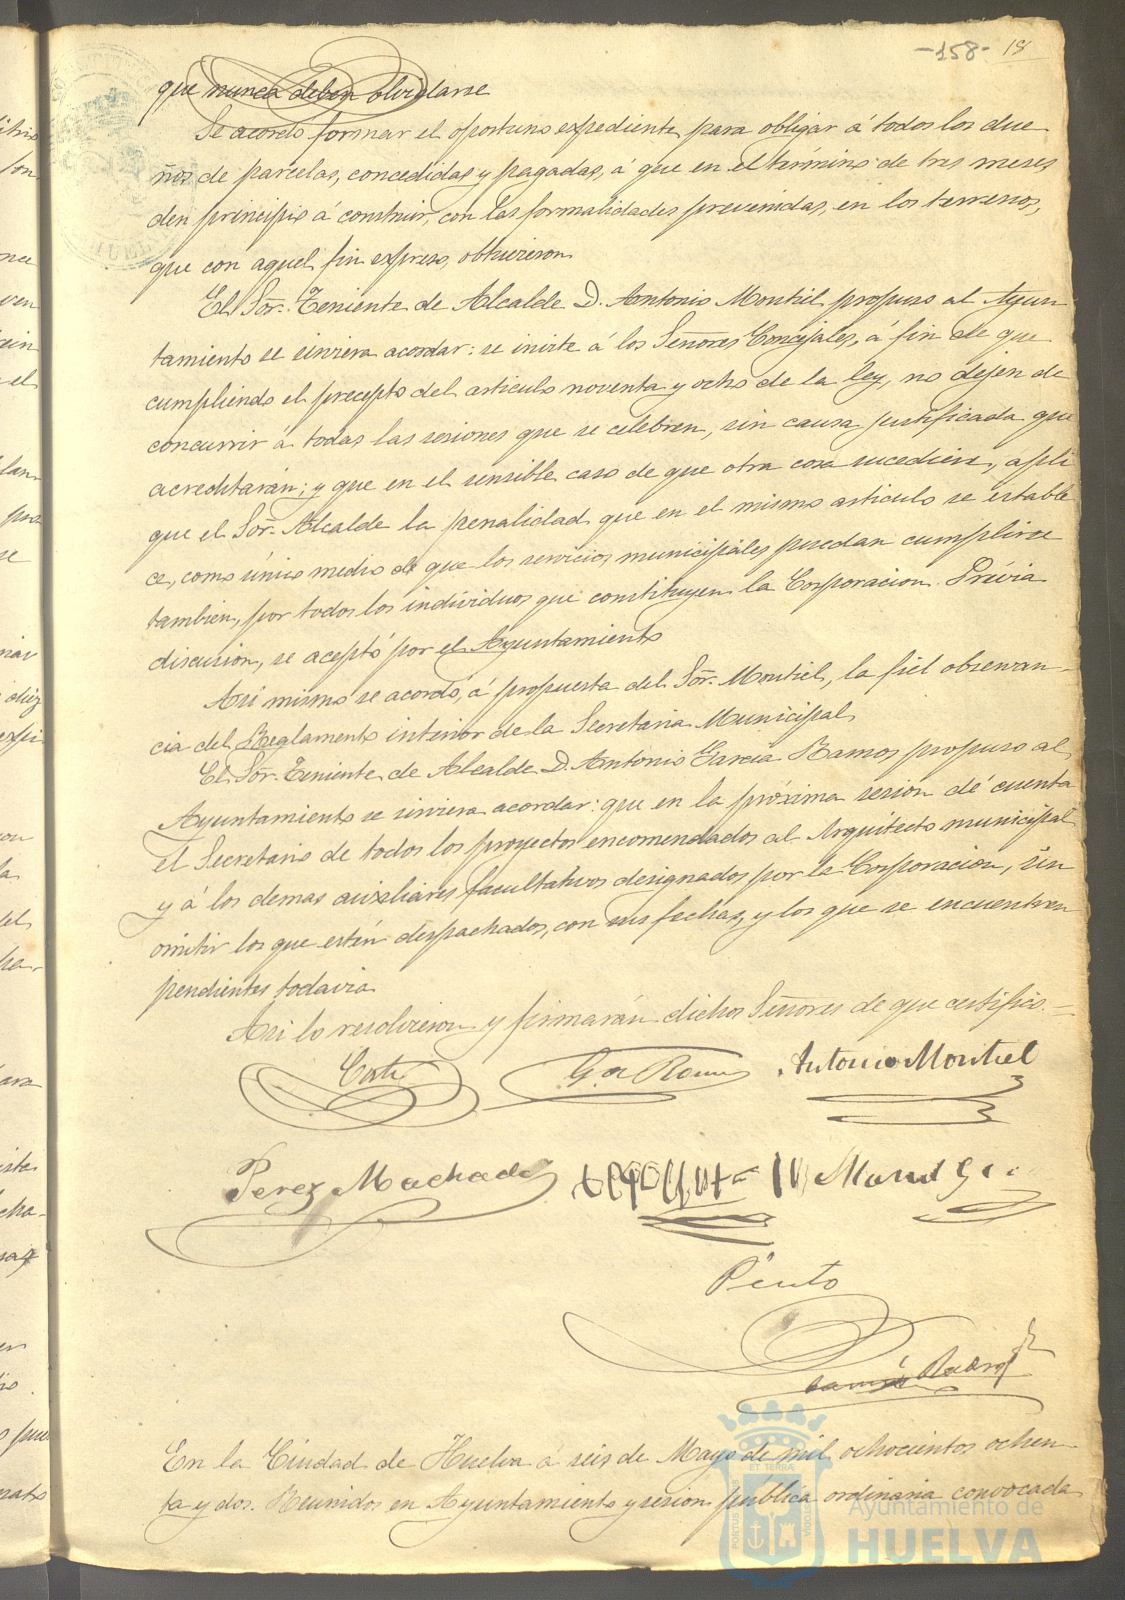 -158- 
que nunca deben olvidarse
Se acordó formar el oportuno expediente para obligar á todos los due-
ños de parcelas, concedidas y pagadas, á que en el término de tres meses
den principio á construir, con las formalidades prevenidas, en los terrenos,
que con aquel fin expreso, obtuvieron
El Sor. Teniente de Alcalde D. Antonio Montiel propuso al Ayun
tamiento se sirviera acordar: se invite á los Señores Concejales, á fin de que
cumpliendo el precepto del articulo noventa y ocho de la ley, no dejen de
concurrir á todas las sesiones que se celebren, sin causa justificada que
acreditarán; y que en el sensible caso de que otra cosa sucediere, apli
que el Sor. Alcalde la penalidad que en el mismo articulo se estable
ce, como único medio de que los servicios municipales puedan cumplirse
tambien, por todos los individuos que constituyen la Corporacion. Prévia
discusion, se aceptó por el Ayuntamiento
Asi mismo se acordó, á propuesta del Sor. Montiel, la fiel observan-
cia del Reglamento interior de la Secretaria Municipal
El Sor. Teniente de Alcalde D. Antonio Garcia Ramos propuso al
Ayuntamiento se sirviera acordar: que en la próxima sesion dé cuenta
el Secretario de todos los proyectos encomendados al Arquitecto municipal
y á los demas auxiliares facultativos designados por la Corporacion, sin
omitir los que estén despachados, con sus fechas, y los que se encuentren
pendientes todavia
Asi lo resolvieron y firmarán dichos Señores de que certifico.=
Antonio Montiel
Perez Machado
Pinto
En la Ciudad de Huelva á seis de Mayo de mil ochocientos ochen-
ta y dos. Reunidos en Ayuntamiento y sesion pública ordinaria convocada
Ayuntamiento de
HUELVA